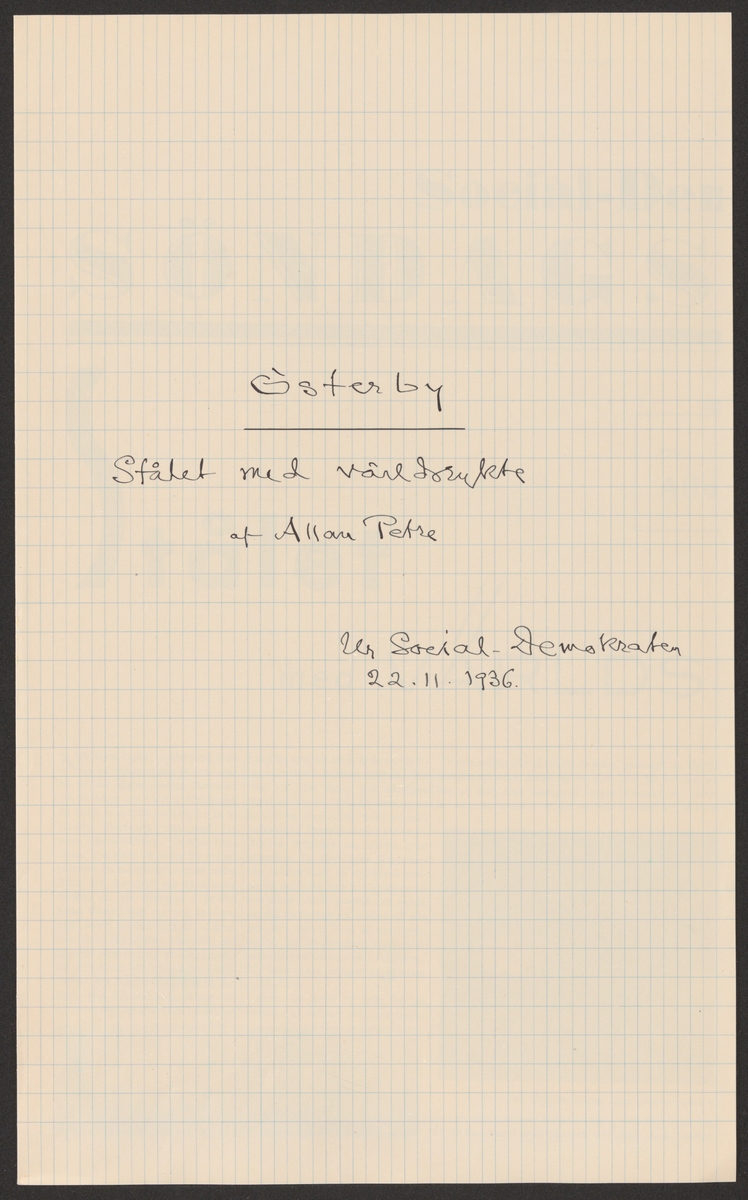 Österby
Stålet med världsrykte
af Allan Petre
Ur Social-Demokraten
22.11.1936.